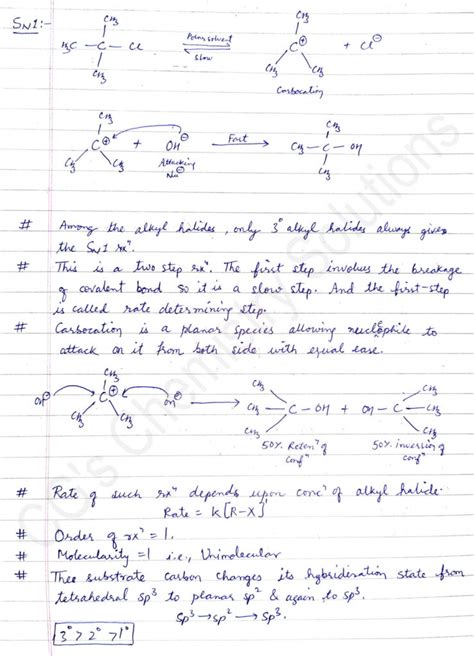 SN1:-
CH3
H3C - C - Cl
CH3
Polar solvent
Slow
CH3
C⊕
CH3 CH3
+ Cl⊖
Carbocation
CH3
C⊕
CH3 CH3
+ OH⊖
Attacking
Nu⊖
Fast
CH3
CH3 - C - OH
CH3
# Among the alkyl halides, only 3° alkyl halides always gives
the SN1 rxⁿ.
# This is a two step rxⁿ. The first step involves the breakage
of covalent bond so it is a slow step. And the first-step
is called rate determining step.
# Carbocation is a planar species allowing nucleophile to
attack on it from both side with equal ease.
OH⊖
CH3
C⊕
CH3 CH3
OH⊖
CH3
CH3 - C - OH
CH3
+
OH - C
CH3
CH3
CH3
50% Retenⁿ of
confⁿ
50% inversion of
confⁿ
# Rate of such rxⁿ depends upon concⁿ of alkyl halide.
Rate = k[R-X]
# Order of rxⁿ = 1.
# Molecularity = 1 i.e., Unimolecular
# Thee substrate carbon changes its hybrideration state from
tetrahedral Sp³ to planar sp² & again to sp³.
Sp³ → sp² → Sp³.
3° > 2° > 1°
CG's Chemistry Solutions